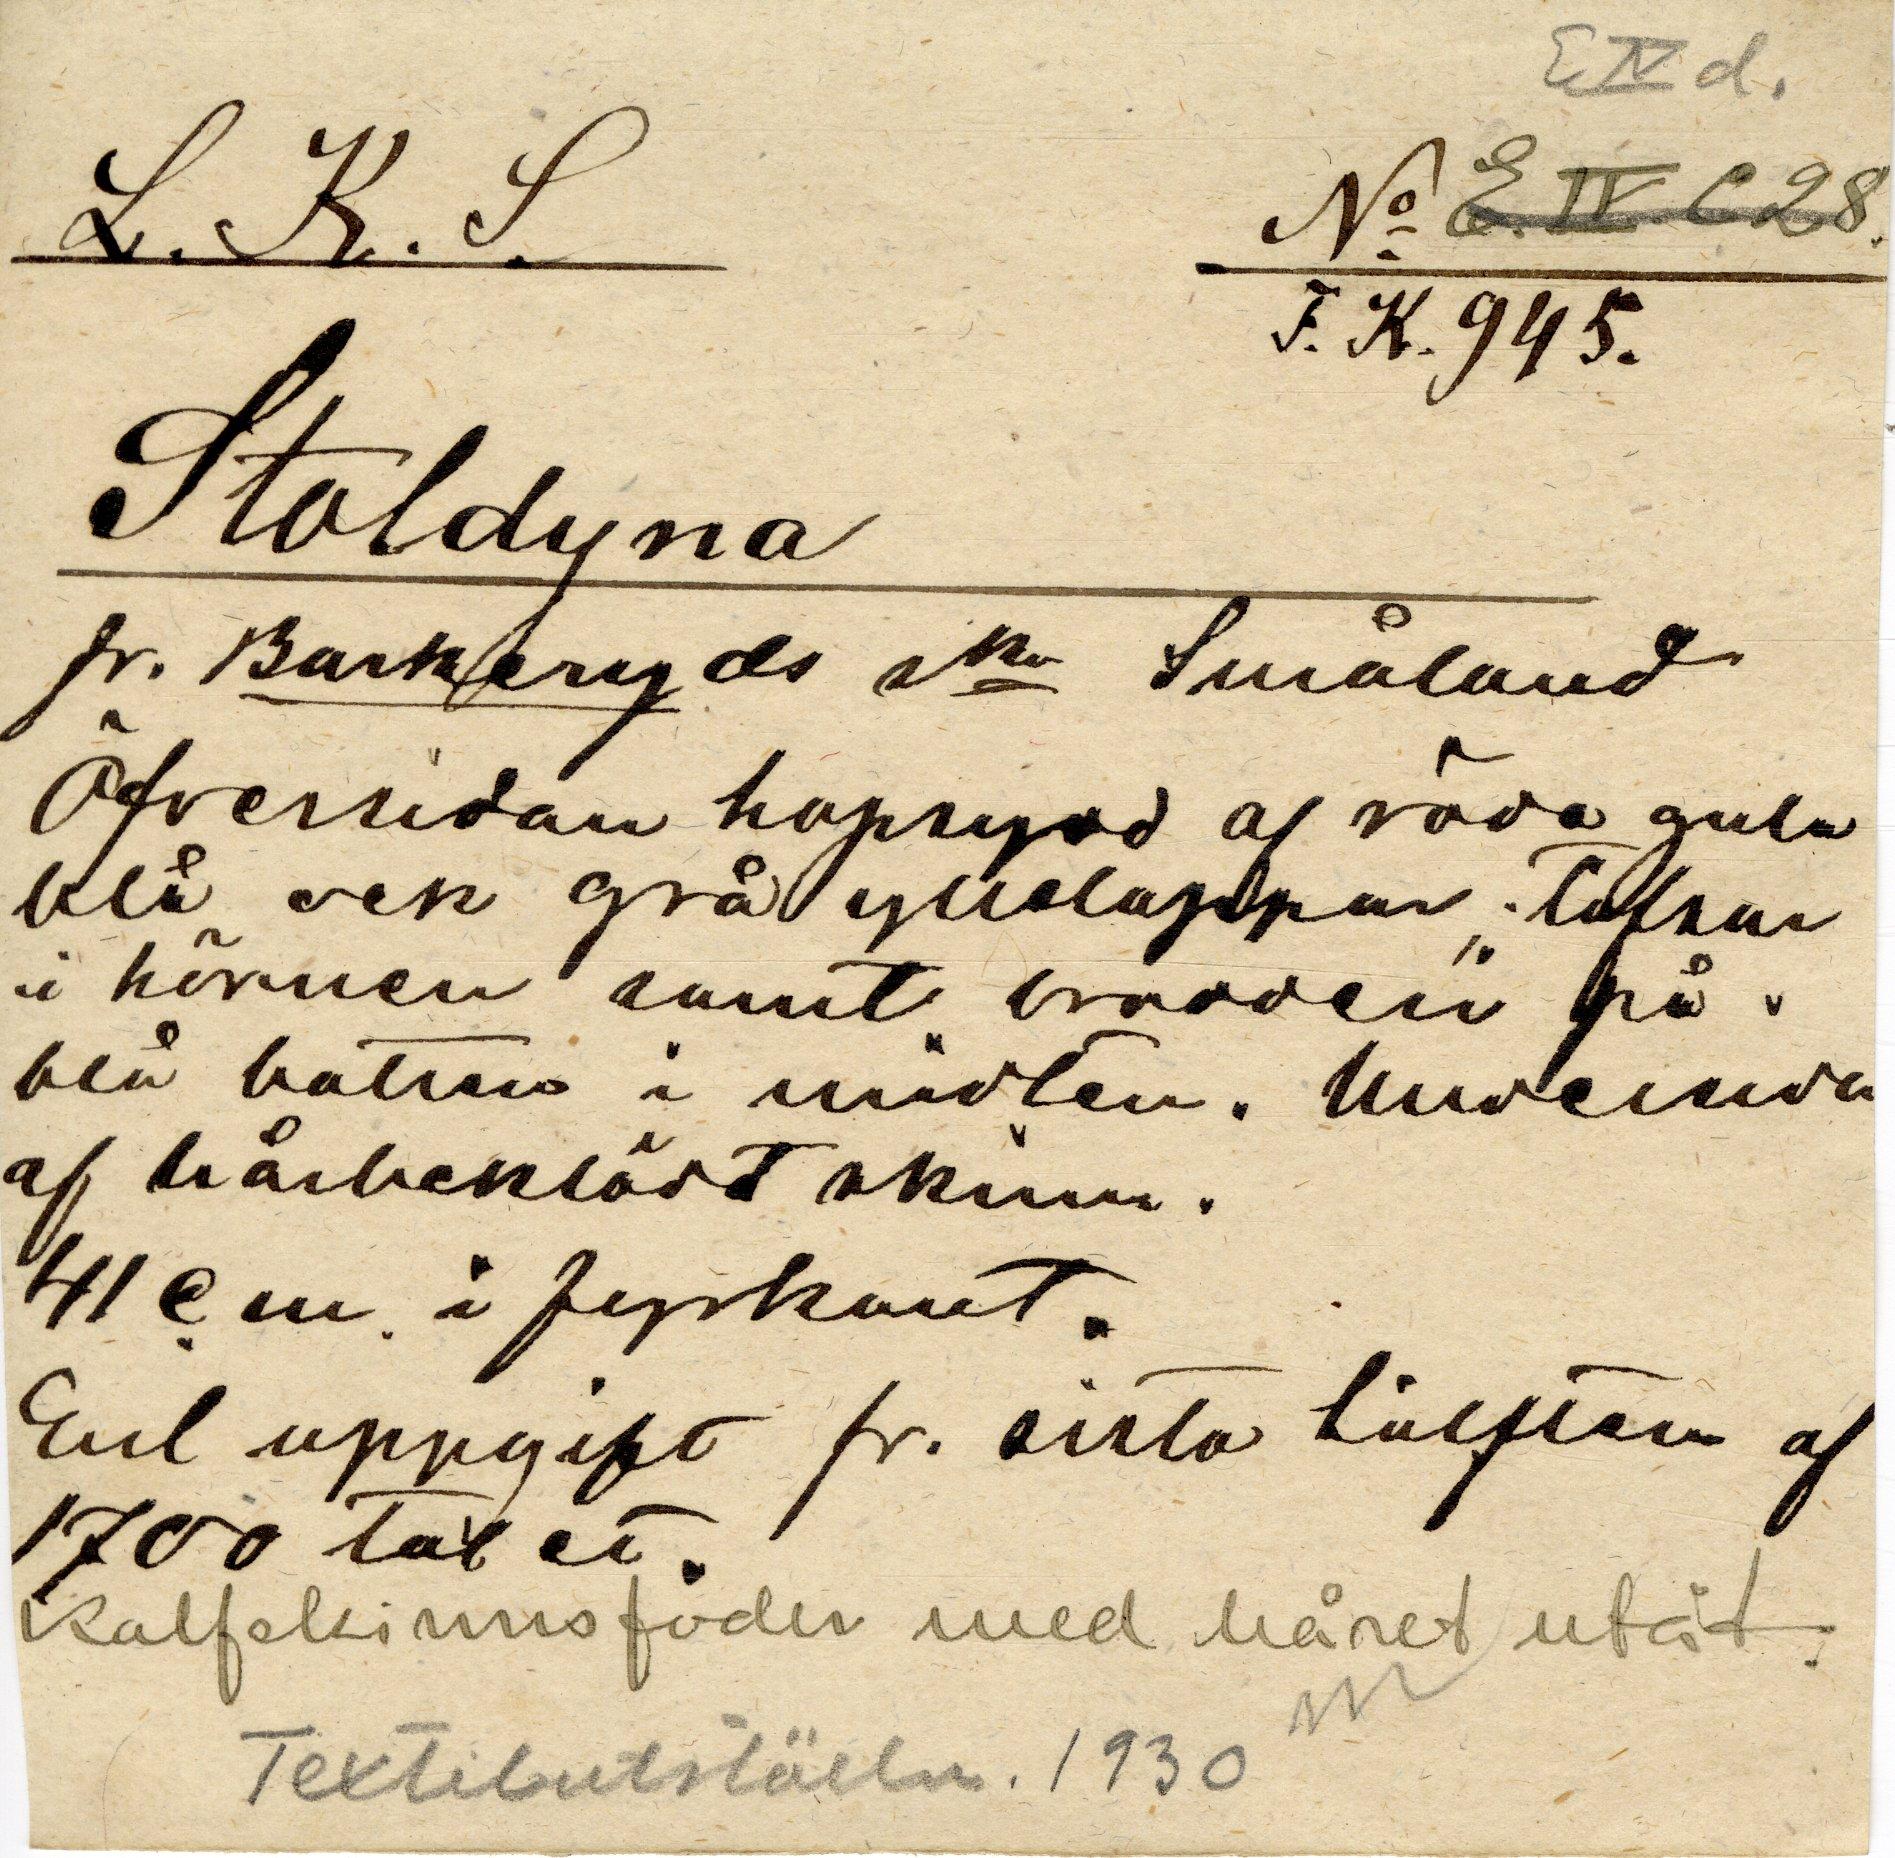 E IV d.
L. K. S.
No E. IV. C 28.
F. K. 945.
Stoldyna
fr. Barkeryds skn Småland
Öfversidan hopsydd af röda gula
blå och grå yllelappar. Tofsar
i hörnen samt broderi på
blå botten i midten. Undersida
af hårbeklädt skinn.
41 c.m. i fyrkant.
Enl uppgift fr. sista hälften af
1700 talet.
Kalfskinnsfoder med håret utåt.
Textilutställn. 1930